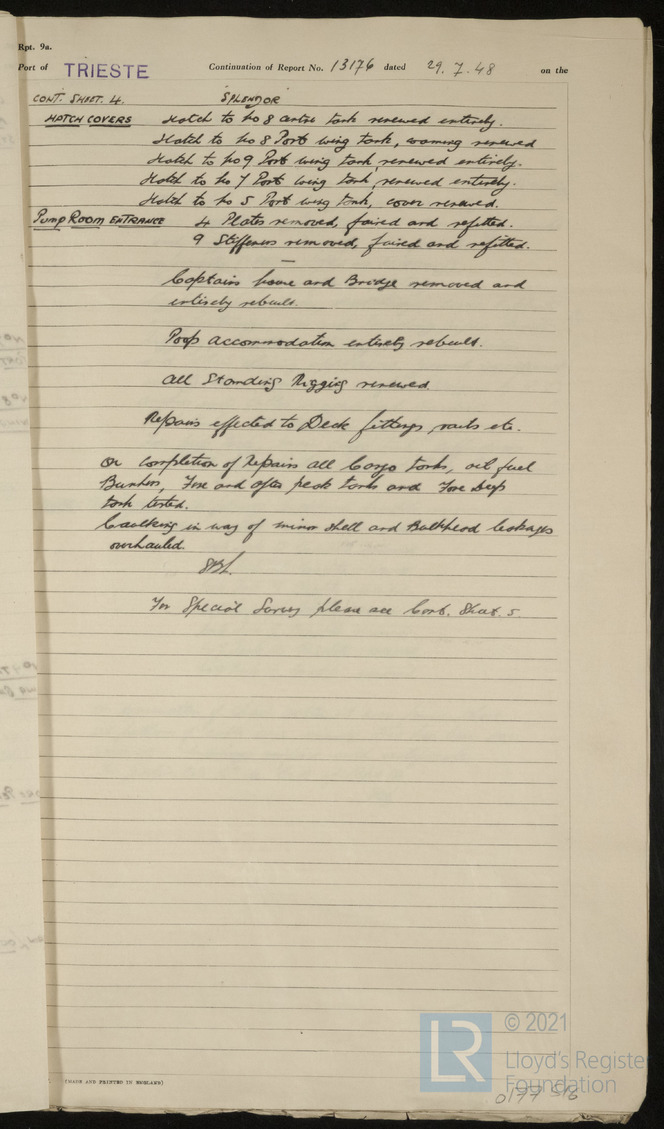 Rpt. 9a.
Port of TRIESTE Continuation of Report No. 13176 dated 29.7.48 on the
CONT. SHEET. 4. "SPLENDOR"
HATCH COVERS Hatch to No 8 centre tank renewed entirely.
Hatch to No 8 Port wing tank, coaming renewed
Hatch to No 9 Port wing tank, renewed entirely.
Hatch to No 7 Port wing tank, renewed entirely.
Hatch to No 5 Port wing tank, cover renewed.
PUMP ROOM ENTRANCE 4 Plates removed, faired and refitted.
9 Stiffeners removed, faired and refitted.
Captains house and Bridge removed and
entirely rebuilt.
Poop accommodation entirely rebuilt.
All Standing Rigging renewed.
Repairs effected to Deck fittings, rails etc.
On completion of repairs all Cargo tanks, oil fuel
Bunkers, Fore and after peak tanks and Fore Deep
tank tested.
Caulking in way of minor shell and Bulkhead leakages
overhauled.
For Special Survey please see Cont. Sheet. 5.
(MADE AND PRINTED IN ENGLAND)
LR
© 2021
Lloyd's Register
Foundation
0177 5/6